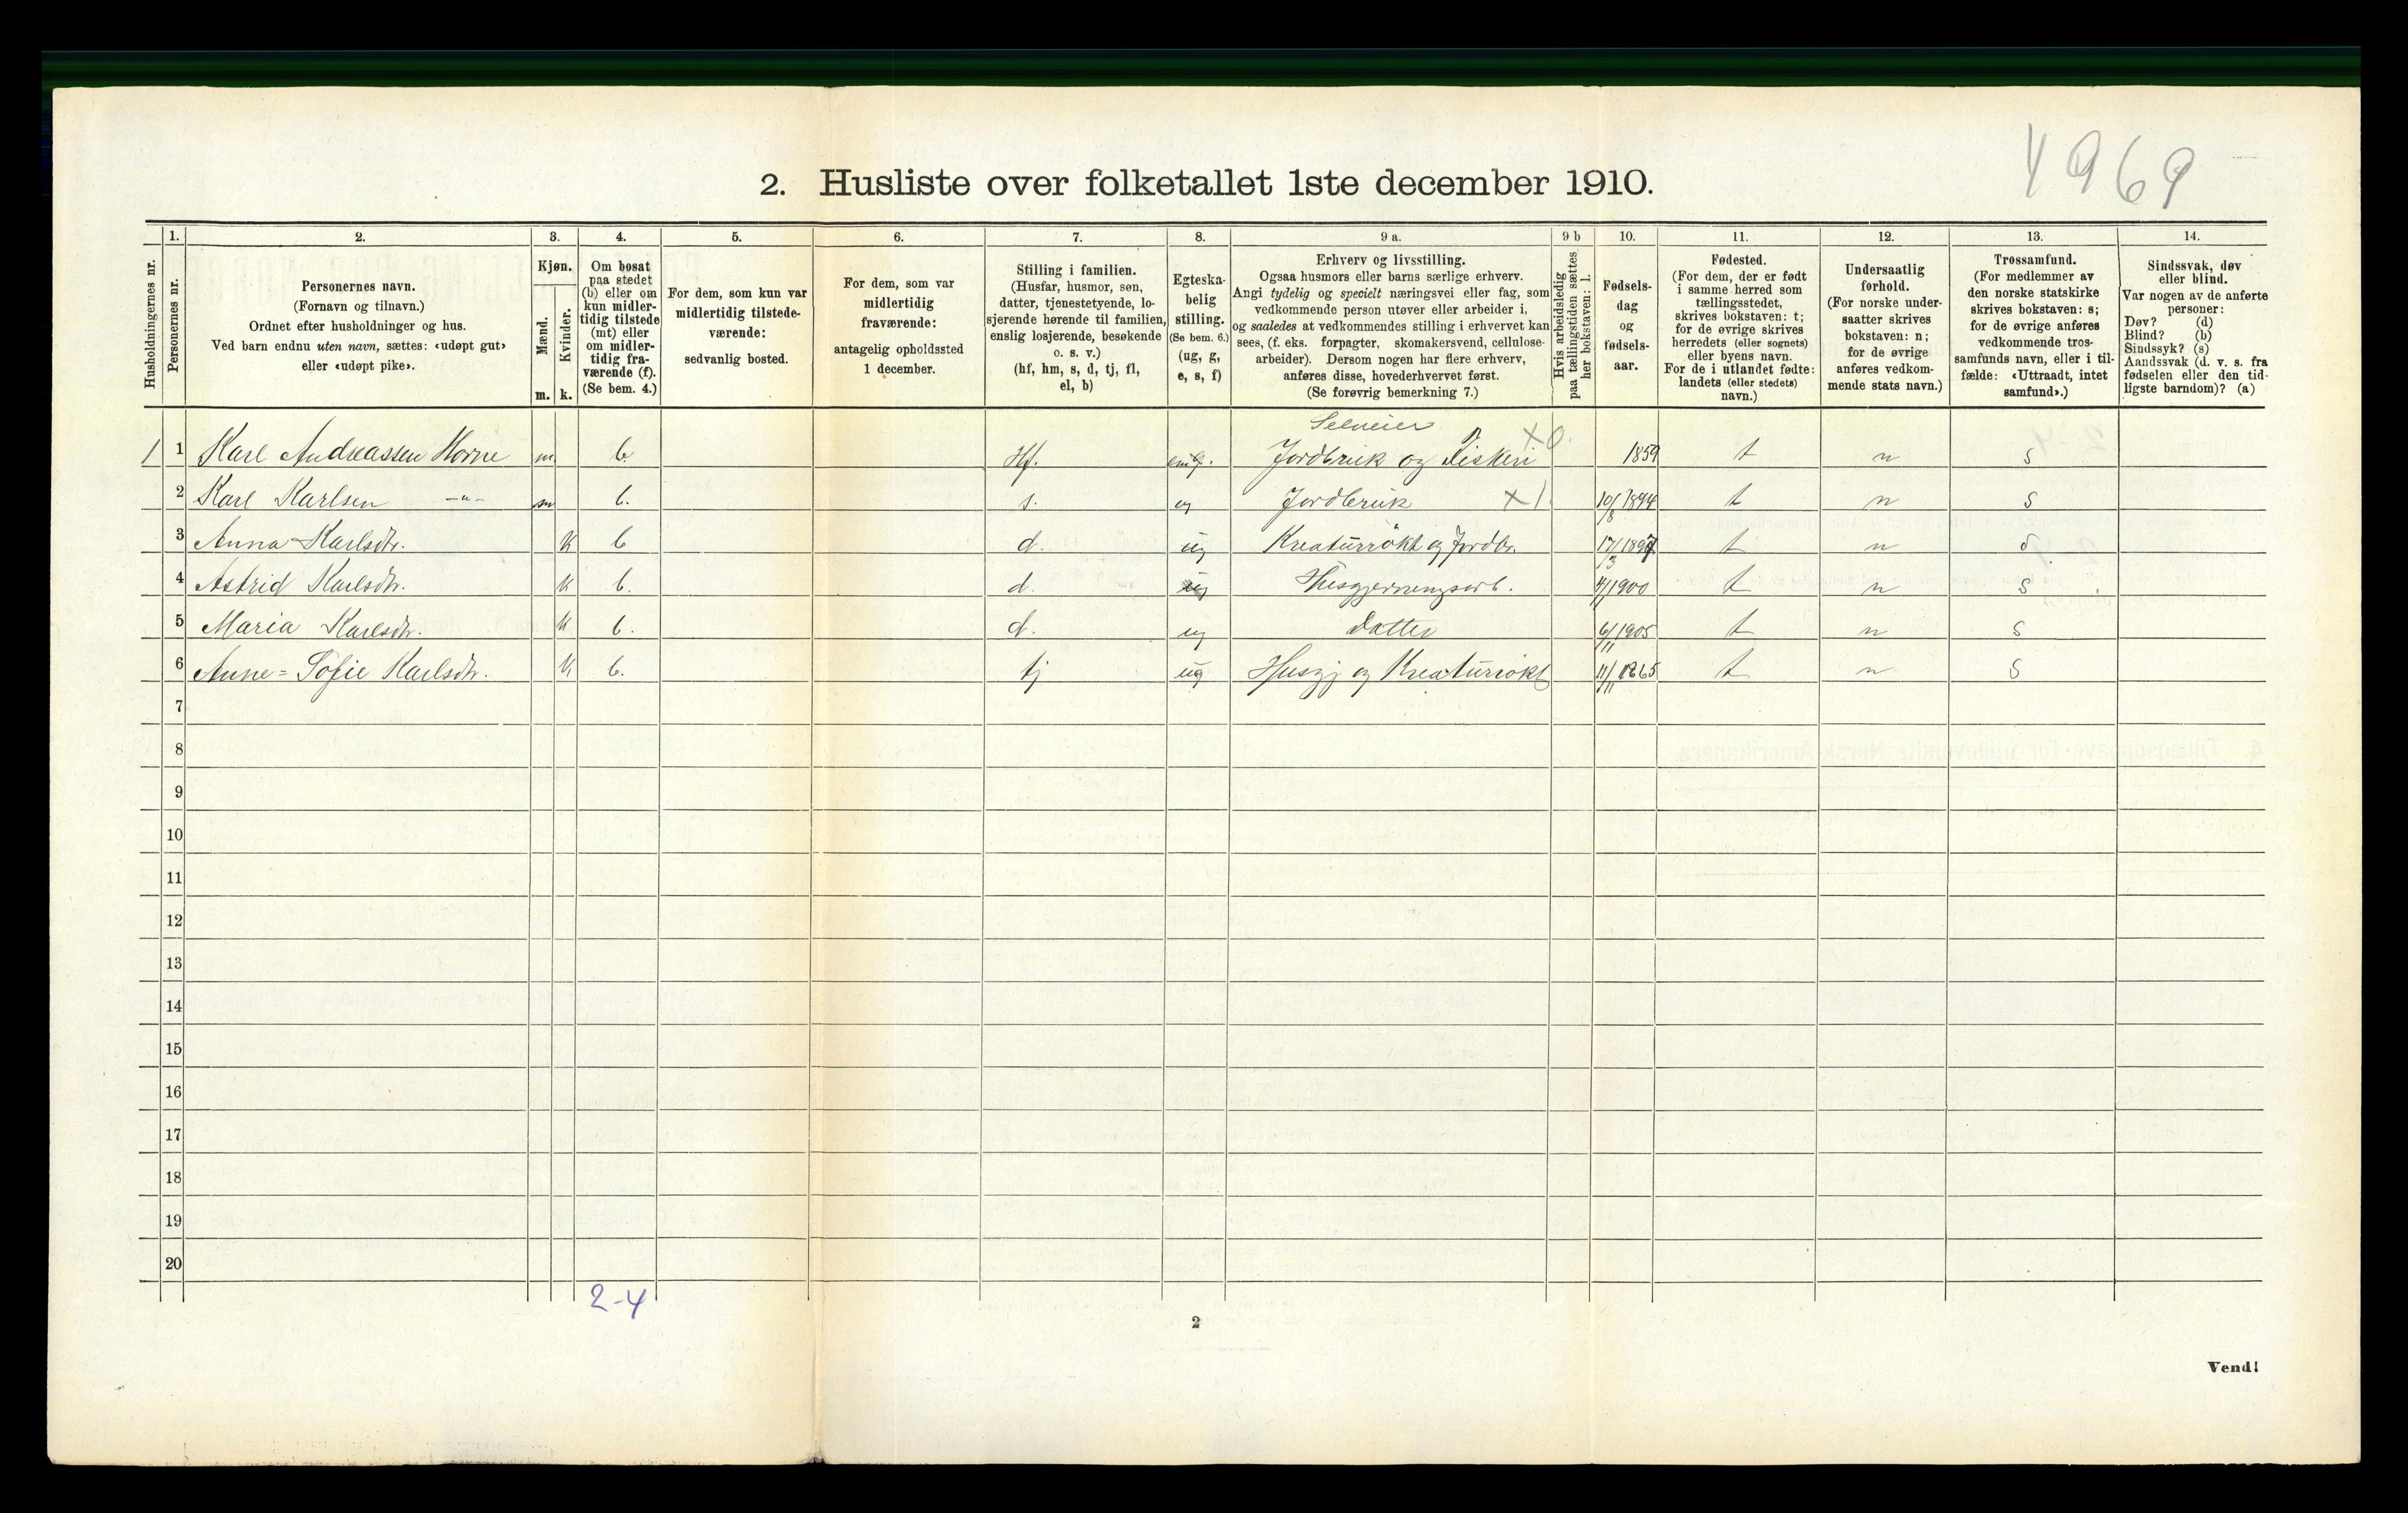 4969
2. Husliste over folketallet 1ste december 1910.
1. 2. 3. 4. 5. 6. 7. 8. 9 a. 9 b 10. 11. 12. 13. 14.
Husholdningernes nr.
Personernes nr.
Personernes navn.
(Fornavn og tilnavn.)
Ordnet efter husholdninger og hus.
Ved barn endnu uten navn, sættes: «udøpt gut»
eller «udøpt pike».
Kjøn.
Mænd.
Kvinder.
m. k.
Om bosat
paa stedet
(b) eller om
kun midler-
tidig tilstede
(mt) eller
om midler-
tidig fra-
værende (f).
(Se bem. 4.)
For dem, som kun var
midlertidig tilstede-
værende:
sedvanlig bosted.
For dem, som var
midlertidig
fraværende:
antagelig opholdssted
1 december.
Stilling i familien.
(Husfar, husmor, søn,
datter, tjenestetyende, lo-
sjerende hørende til familien,
enslig losjerende, besøkende
o. s. v.)
(hf, hm, s, d, tj, fl,
el, b)
Egteska-
belig
stilling.
(Se bem. 6.)
(ug, g,
e, s, f)
Erhverv og livsstilling.
Ogsaa husmors eller barns særlige erhverv.
Angi tydelig og specielt næringsvei eller fag, som
vedkommende person utøver eller arbeider i,
og saaledes at vedkommendes stilling i erhvervet kan
sees, (f. eks. forpagter, skomakersvend, cellulose-
arbeider). Dersom nogen har flere erhverv,
anføres disse, hovederhvervet først.
(Se forøvrig bemerkning 7.)
Hvis arbeidsledig
paa tællingstiden sættes
her bokstaven: l.
Fødsels-
dag
og
fødsels-
aar.
Fødested.
(For dem, der er født
i samme herred som
tællingsstedet,
skrives bokstaven: t;
for de øvrige skrives
herredets (eller sognets)
eller byens navn.
For de i utlandet fødte:
landets (eller stedets)
navn.)
Undersaatlig
forhold.
(For norske under-
saatter skrives
bokstaven: n;
for de øvrige
anføres vedkom-
mende stats navn.)
Trossamfund.
(For medlemmer av
den norske statskirke
skrives bokstaven: s;
for de øvrige anføres
vedkommende tros-
samfunds navn, eller i til-
fælde: «Uttraadt, intet
samfund».)
Sindssvak, døv
eller blind.
Var nogen av de anførte
personer:
Døv? (d)
Blind? (b)
Sindssyk? (s)
Aandssvak (d. v. s. fra
fødselen eller den tid-
ligste barndom)? (a)
Selveier
1 1 Karl Andreassen Horne m. b. Hf. Jordbruk og Fiskeri X0. 1859 t n s
2 Karl Karlsen -"- m b. s. ug Jordbruk X1. 10/8 1894 t n s
3 Anna Karlsdtr. k b d. ug Kreaturrökt og Jordbr. 17/3 1897 t n s
4 Astrid Karlsdtr. k b. d. ug Husgjerningsarb. 1900 t n s
5 Maria Karlsdtr. k b. d. ug Datter 6/11 1905 t n s
6 Anne=Sofie Karlsdtr. k b. tj ug Husgj og Kreaturrökt 11/11 1865 t n s
7
8
9
10
11
12
13
14
15
16
17
18
19
20
2-4
2
Vend!